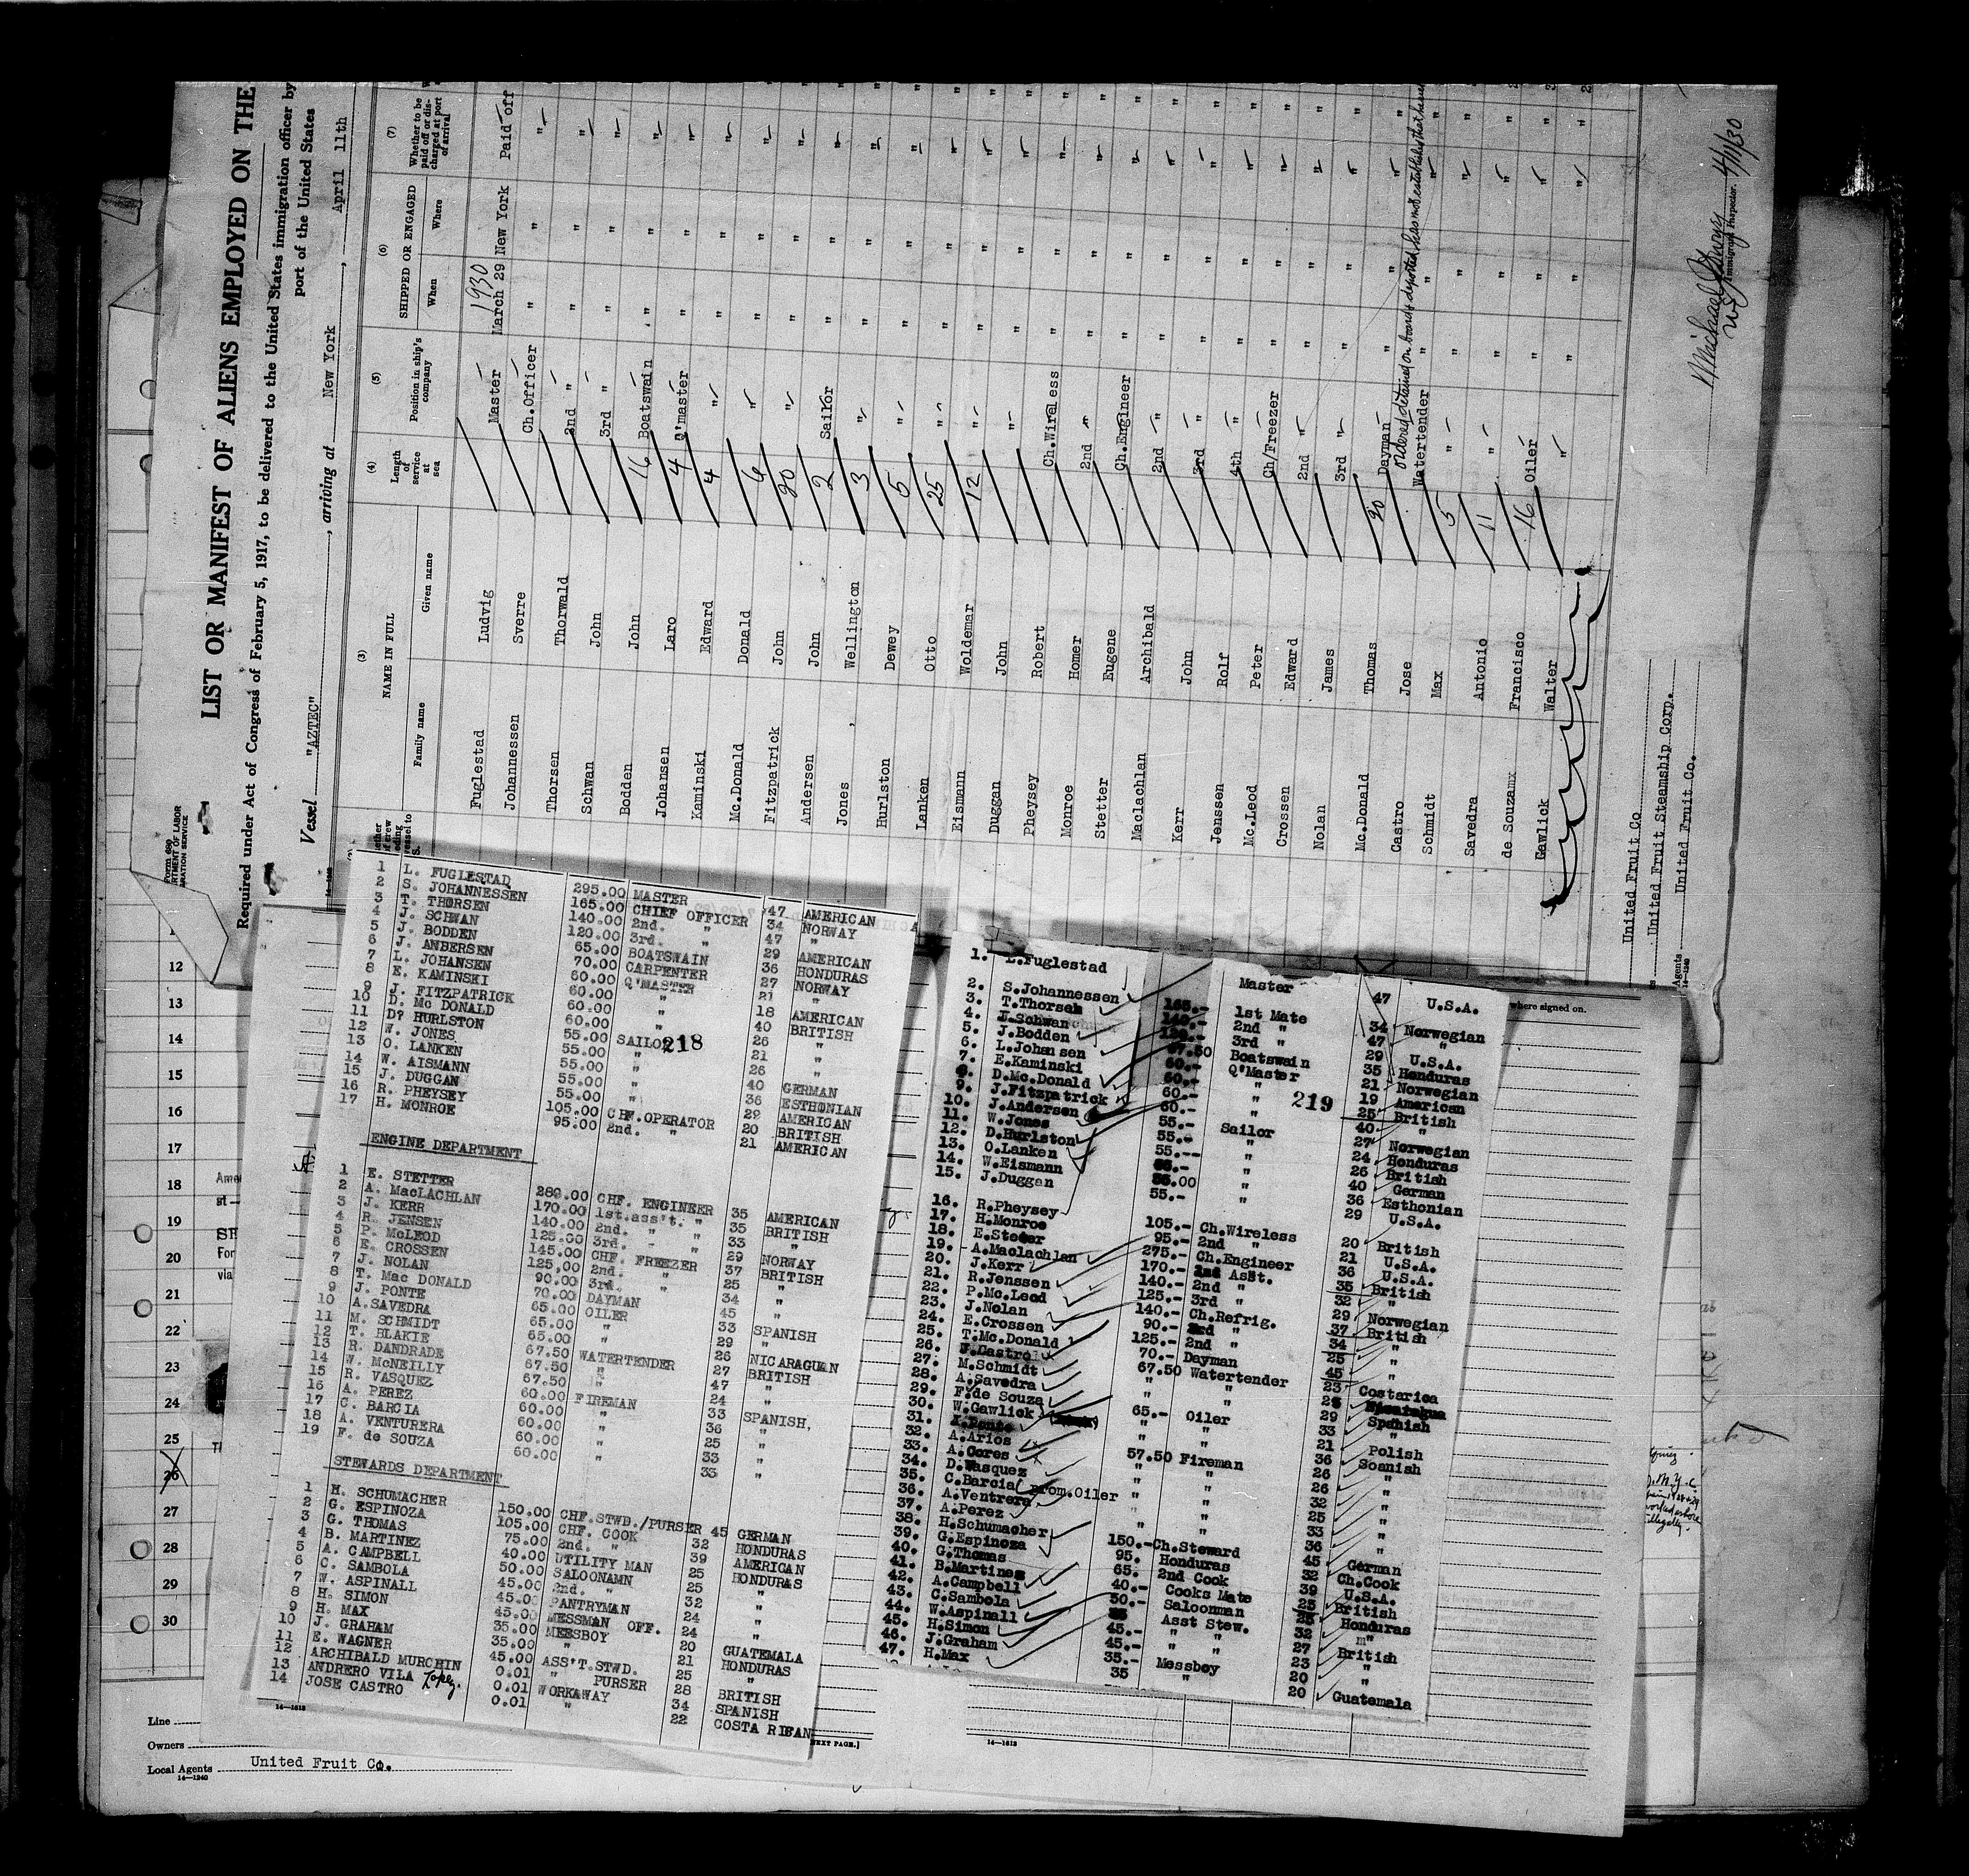 LIST OR MANIFEST OF ALIENS EMPLOYED ON THE
Required under Act of Congress of February 5, 1917, to be delivered to the United States immigration officer by
port of the United States
Vessel "AZTEC" , arriving at New York , April 11th
(3) (4) (5) (6) (7)
NAME IN FULL Length of service at sea Position in ship's company SHIPPED OR ENGAGED Whether to be paid off or discharged at port of arrival
Family name Given name When Where
1930
Fuglestad Ludvig Master March 29 New York Paid off
Johannessen Sverre Ch.Officer " " "
Thorsen Thorwald 2nd " " " "
Schwan John 3rd " " " "
Bodden John 16 Boatswain " " "
Johansen Laro 4 Q'master " " "
Kaminski Edward 4 " " " "
Mc.Donald Donald 6 " " " "
Fitzpatrick John 20 " " " "
Andersen John 2 Sailor " " "
Jones , Wellington 3 " " " "
Hurlston Dewey 5 " " " "
Lanken Otto 25 " " " "
Eismann Woldemar 12 " " " "
Duggan John " " " "
Pheysey Robert Ch.Wireless " " "
Monroe Homer 2nd " " " "
Stetter Eugene Ch.Engineer " " "
Maclachlan Archibald 2nd " " " "
Kerr John 3rd " " " "
Jenssen Rolf 4th " " " "
Mc.Leod Peter Ch/Freezer " " "
Crossen Edward 2nd " " " "
Nolan James 3rd " " " "
Mc.Donald Thomas 20 Dayman " " "
Castro Jose Watertender " " "
ordered detained on board & deported, has not established that he
Schmidt Max 5 " " " "
Savedra Antonio 11 " " " "
de Souzamx Francisco 16 Oiler " " "
Gawlick Walter " " " "
United Fruit Co
United Fruit Steamship Corp.
Agents United Fruit Co.
14-1240
Immigrant Inspector. 4/11/30
1 L. FUGLESTAD 295.00 MASTER 47 AMERICAN
2 S. JOHANNESSEN 165.00 CHIEF OFFICER 34 NORWAY
3 T. THORSEN 140.00 2nd. " 47 "
4 J. SCHWAN 120.00 3rd. " 29 AMERICAN
5 J. BODDEN 65.00 BOATSWAIN 36 HONDURAS
6 J. ANDERSEN 70.00 CARPENTER 27 NORWAY
7 L. JOHANSEN 60.00 Q'MASTER 21 "
8 E. KAMINSKI 60.00 " 18 AMERICAN
9 J. FITZPATRICK 60.00 " 40 BRITISH
10 D. Mc DONALD 60.00 " 26 "
11 D? HURLSTON 55.00 SAILOR 21 "
12 W. JONES 55.00 " 26 "
13 O. LANKEN 55.00 " 40 GERMAN
14 W. AISMANN 55.00 " 36 ESTHONIAN
15 J. DUGGAN 55.00 " 29 AMERICAN
16 R. PHEYSEY 105.00 CHF.OPERATOR 20 BRITISH
17 H. MONROE 95.00 2nd. " 21 AMERICAN
218
ENGINE DEPARTMENT
1 E. STETTER 280.00 CHF. ENGINEER 35 AMERICAN
2 A. MacLACHLAN 170.00 1st.ass't. " 35 BRITISH
3 J. KERR 140.00 2nd. " " 33 "
4 R. JENSEN 125.00 3rd. - " 29 NORWAY
5 P. McLEOD 145.00 CHF. FREEZER 37 BRITISH
6 E. CROSSEN 125.00 2nd. " 25 "
7 J. NOLAN 90.00 3rd. " 34 "
8 T. Mac DONALD 70.00 DAYMAN 45 "
9 J. PONTE 65.00 OILER 33 SPANISH
10 A.SAVEDRA 65.00 " 29 "
11 M. SCHMIDT 65.00 " 26 NICARAGUAN
12 T. BLAKIE 67.50 WATERTENDER 27 BRITISH
13 R. DANDRADE 67.50 " 47 "
14 W. McNEILLY 67.50 " 24 "
15 R. VASQUEZ 60.00 FIREMAN 33 SPANISH,
16 A. PEREZ 60.00 " 36 "
17 C. BARCIA 60.00 " 25 "
18 A. VENTURERA 60.00 " 33 "
19 F. de SOUZA 60.00 " 33 "
STEWARDS DEPARTMENT
1 H. SCHUMACHER 150.00 CHF.STWD./PURSER 45 GERMAN
2 G. ESPINOZA 105.00 CHF. COOK 32 HONDURAS
3 G. THOMAS 75.00 2nd. " 39 AMERICAN
4 B. MARTINEZ 40.00 UTILITY MAN 25 HONDURAS
5 A. CAMPBELL 50.00 SALOONAMN 25 "
6 C. SAMBOLA 45.00 2nd. " 32 "
7 W. ASPINALL 45.00 PANTRYMAN 24 "
8 H. SIMON 45.00 MESSMAN OFF. 24 "
9 H. MAX 35.00 MEESBOY 20 GUATEMALA
10 J. GRAHAM 35.00 " 21 HONDURAS
11 E. WAGNER 45.00 ASS'T.STWD. 25 "
12 ARCHIBALD MURCHIN 0.01 PURSER 28 BRITISH
13 ANDRERO VILA Lopez. 0.01 WORKAWAY 34 SPANISH
14 JOSE CASTRO 0.01 " 22 COSTA RIEAN
1. L.Fuglestad Master 47 U.S.A.
2. S.Johannessen 165.- 1st Mate 34 Norwegian
3. T.Thorseh 140.- 2nd " 47 "
4. J.Schwan 120.- 3rd " 29 U.S.A.
5. J.Bodden 67.50 Boatswain 35 Honduras
6. L.Johansen 60.- Q'Master 21 Norwegian
7. E.Kaminski 60.- " 19 American
8. D.Mc.Donald 60.- " 25 British
9. J.Fitzpatrick 60.- " 40 "
10. J.Andersen 55.- Sailor 27 Norwegian
11. W.Jones 55.- " 24 Honduras
12. D.Hurlston 55.-- " 26 British
13. O.Lanken 55.- " 40 German
14. W.Eismann 55.00 " 36 Esthonian
15. J.Duggan 55.- " 29 U.S.A.
219
16. R.Pheysey 105.- Ch.Wireless 20 British
17. H.Monroe 95.- 2nd " 21 U.S.A.
18. E.Steter 275.- Ch.Engineer 36 U.S.A.
19. A.Maclachlan 170.- Asst. 35 British
20. J.Kerr 140.- 2nd " 32 "
21. R.Jenssen 125.- 3rd " 29 Norwegian
22. P.Mc.Leod 140.- Ch.Refrig. 37 British
23. J.Nolan 90.- 3rd " 34 "
24. E.Crossen 125.- 2nd " 25 "
25. T.Mc.Donald 70.- Dayman 45 "
26. J.Castro 67.50 Watertender 23 Costarica
27. M.Schmidt " " Nicaragua
28. A.Savedra " " 29 Spanish
29. F.de Souza 65.- Oiler 33 "
30. W.Gawlick " " 21 Polish
31. Ponte " 36 Soanish
32. A.Arios 57.50 Fireman 26 "
33. A.Ceres " " 26 "
34. D.Vasquez " " 32 "
35. C.Barcia from.Oiler " " 25 "
36. A.Ventrera " " 33 "
37. A.Perez " " 36 "
38. H.Schumacher 150.-Ch.Steward 45 German
39. G.Espinoza 95. Honduras 32 Ch.Cook
40. G.Thomas 65. 2nd Cook 39 U.S.A.
41. B.Martines 40.- Cooks Mate 25 British
42. A.Campbell 50.- Saloonman 25 Honduras
43. C.Sambola Asst Stew. 32 "
44. W.Aspinall 45.- " " 27 British
45. H.Simon 45.- " " 23 "
46. J.Graham 35.- Messboy 20 "
47. H.Max 35 " 20 Guatemala
where signed on.
12
13
14
15
16
17
18
19
20
21
22
23
24
25
26
27
28
29
30
Line
Owners
Local Agents United Fruit Co.
14-1240
14-1613
NEXT PAGE.]
14-1613